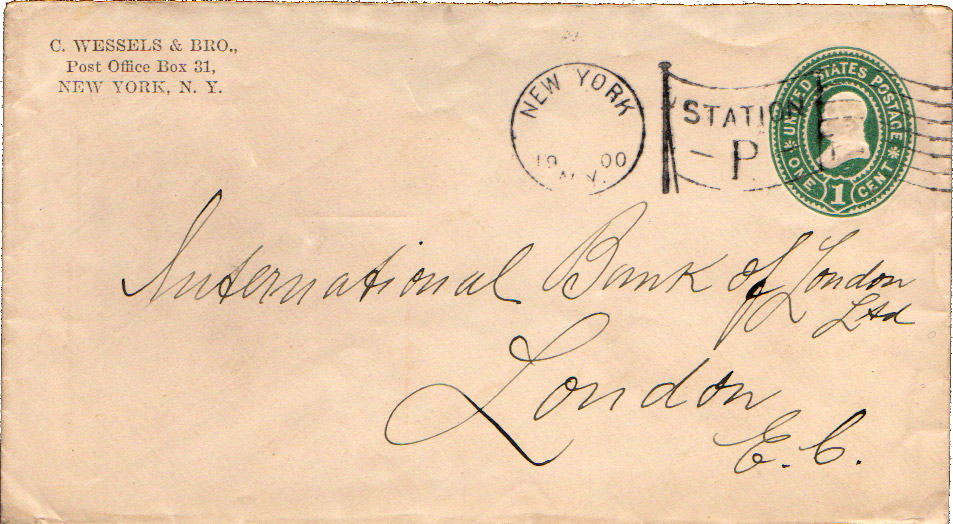 C. WESSELS & BRO.,
Post Office Box 31,
NEW YORK, N. Y.
NEW YORK
19 00
N.Y.
STATION
P
UNITED STATES POSTAGE
ONE 1 CENT
International Bank of London
Ltd
London
E. C.